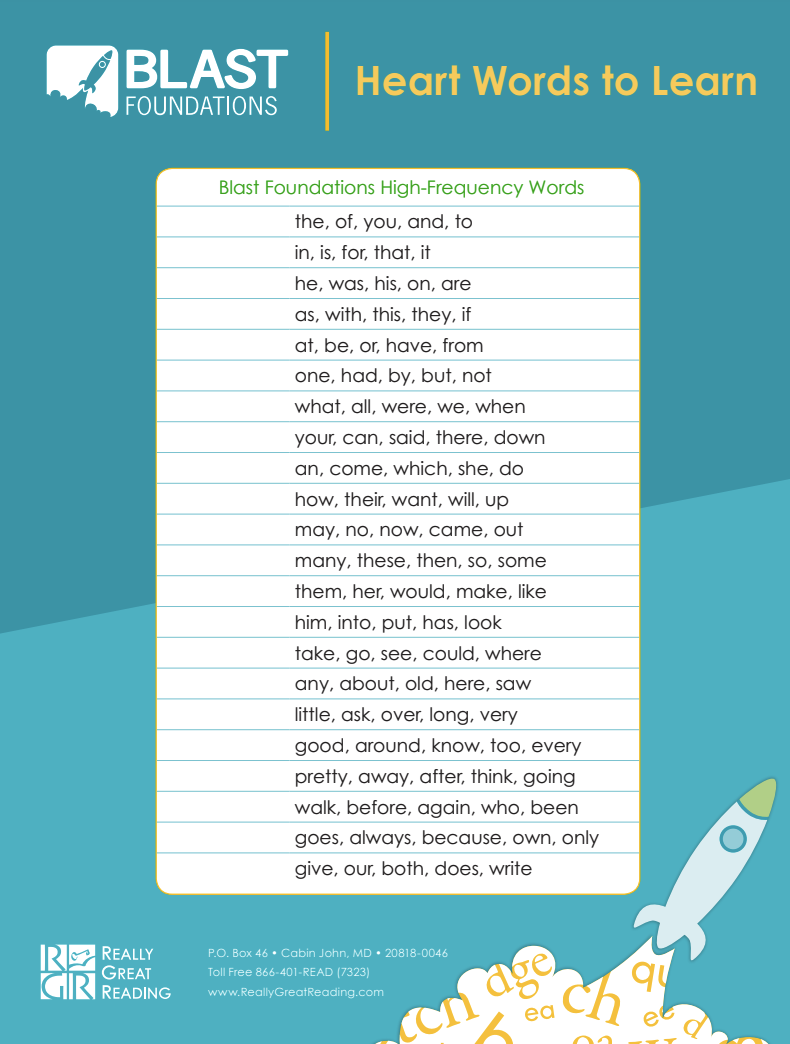 BLAST
FOUNDATIONS
Heart Words to Learn
Blast Foundations High-Frequency Words
the, of, you, and, to
in, is, for, that, it
he, was, his, on, are
as, with, this, they, if
at, be, or, have, from
one, had, by, but, not
what, all, were, we, when
your, can, said, there, down
an, come, which, she, do
how, their, want, will, up
may, no, now, came, out
many, these, then, so, some
them, her, would, make, like
him, into, put, has, look
take, go, see, could, where
any, about, old, here, saw
little, ask, over, long, very
good, around, know, too, every
pretty, away, after, think, going
walk, before, again, who, been
goes, always, because, own, only
give, our, both, does, write
R
GR
REALLY
GREAT
READING
P.O. Box 46 • Cabin John, MD • 20818-0046
Toll Free 866-401-READ (7323)
www.ReallyGreatReading.com
dge
ch
qu
ea
d